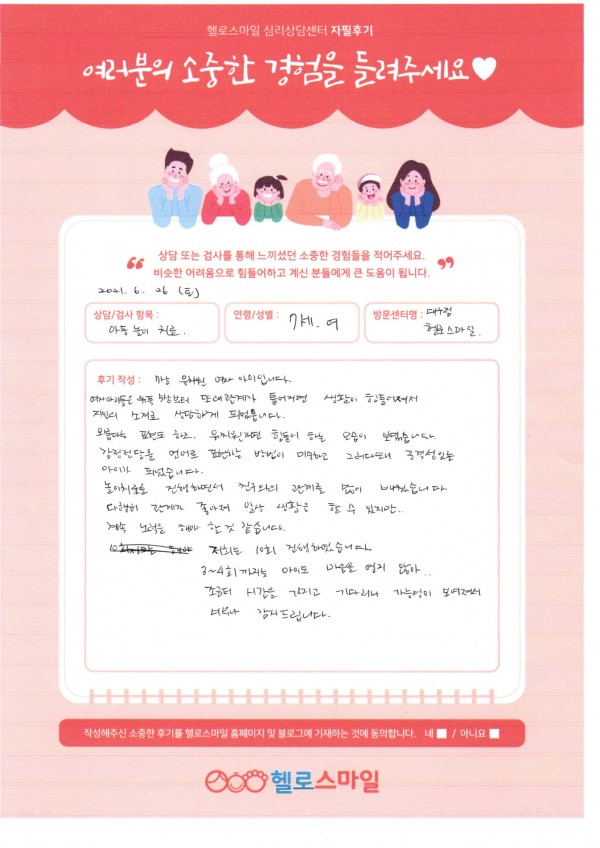 헬로스마일 심리상담센터 자필후기
여러분의 소중한 경험을 들려주세요♥
상담 또는 검사를 통해 느끼셨던 소중한 경험들을 적어주세요.
비슷한 어려움으로 힘들어하고 계신 분들에게 큰 도움이 됩니다.
2021. 6. 26 (토)
상담/검사 항목 : 아동 놀이 치료.
연령/성별 : 7세. 여
방문센터명 : 대구점 헬로스마일.
후기 작성 : 7세 유치원 여자 아이입니다.
여자아이들은 부터 또래관계가 틀어지면 생활이 힘들어져서
지인의 소개로 상담하게 되었습니다.
표현도 하고.. 유치원 힘들어 하는 모습이 보였습니다.
감정전달을 언어로 표현하는 방법이 미숙하고 그러다보니 걱정성있는
아이가 되었습니다.
놀이치료를 진행하면서 친구와의 관계를 많이 배웠습니다
다행히 관계가 좋아져 일상 생활은 할 수 있지만..
계속 노력을 해야 할 것 같습니다.
저희는 10회 진행하였습니다.
3~4회 까지는 아이도 마음을 열지 않아..
조금더 시간을 가지고 기다리니 가능성이 보여져서
너무나 감사드립니다.
작성해주신 소중한 후기를 헬로스마일 홈페이지 및 블로그에 기재하는 것에 동의합니다. 네 / 아니요
헬로스마일